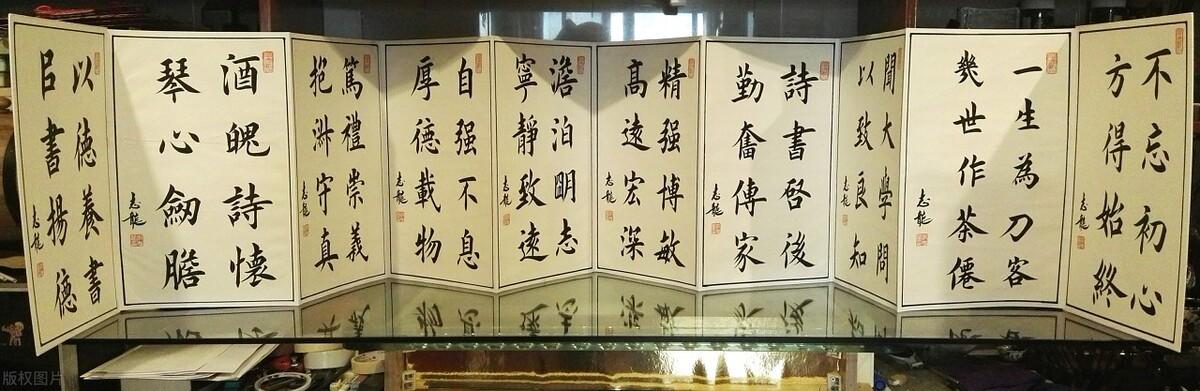 不忘初心
方得始終
志龍
一生為刀客
幾世作茶僊
志龍
聞大學問
以致良知
志龍
詩書啓後
勤奮傳家
志龍
精强博敏
高遠宏深
志龍
澹泊眀志
寧靜致遠
志龍
自强不息
厚徳載物
志龍
篤禮崇義
抱守真
志龍
酒魄詩懷
琴心劒膽
志龍
以徳養書
㠯書揚徳
志龍
版权图片